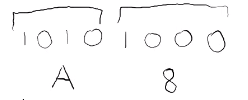 1010 1000
A 8